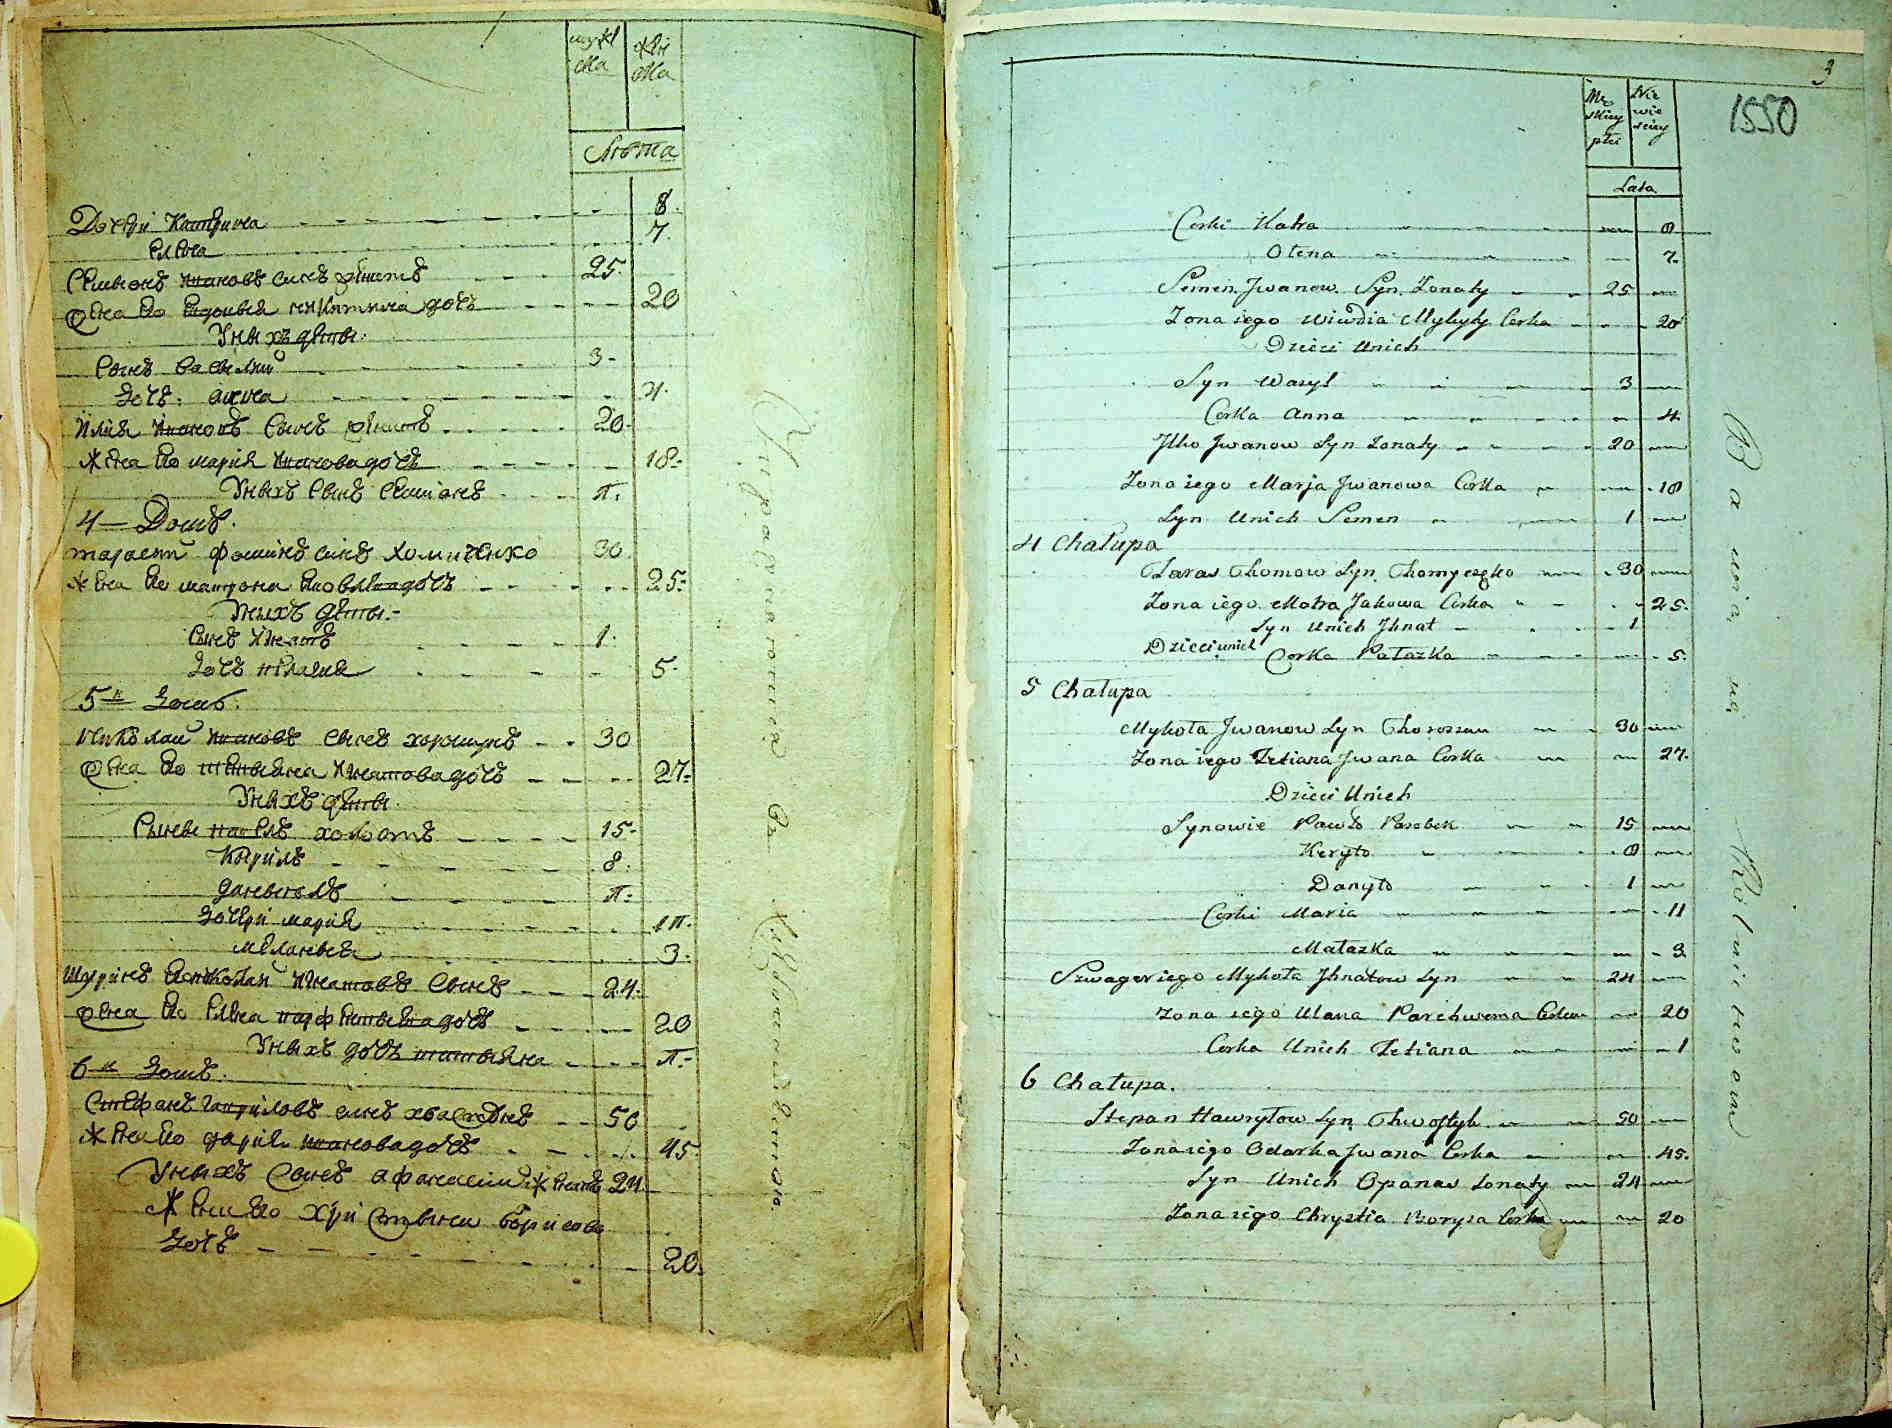 мужска женска
Лѣта
Дочери Катрина 8
Елена 7
Семионъ Ивановъ синъ женатъ 25
Жена его Евдокия Никитина дочь 20
У нихъ дети
Синъ Василий 3
Дочь Анна 4
Илия Ивановъ Синъ женатъ 20
Жена его Мария Иванова дочь 18
У нихъ Синъ Семионъ
4 Домъ
Тарасий Фоминъ синъ Хомиченко 30
Жена его Матрона Яковлева дочь 25
У нихъ дети
Синъ Игнатъ 1
Дочь Пелагия 5
5 Домъ
Николай Ивановъ Синъ 30
Жена его Татьяна Игнатова дочь 27
У нихъ дети
Сыны Павелъ 15
Кирилъ 8
Даниилъ
Дочери Мария
Мелания 3
Шуринъ Николай Игнатовъ Синъ 24
Жена его Елена дочь 20
У нихъ дочь Татияна
6 Домъ
Стефанъ Гавриловъ синъ 50
Жена его Дария Иванова дочь 45
У нихъ Синъ Афанасий женатъ 24
Жена его Христина Борисова
Дочь 20
3
1550
Mę skiey płci Nie wie sciey
Lata
Corki Katra 8
Olena 7
Semen Jwanow Syn Zonaty 25
Zona iego Wiwdia Mykyty Corka 20
Dzieci Unich
Syn Wasyl 3
Corka Anna 4
Jlko Jwanow Syn Zonaty 20
Zona iego Marja Jwanowa Corka 18
Syn Unich Semen 1
4 Chałupa
Taras Chomow Syn Chomyczeko 30
Zona iego Motra Jakowa Corka 25
Syn Unich Jhnat 1
Dzieci unich Corka Palazka 5
5 Chałupa
Mykoła Jwanow Syn Choroszun 30
Zona iego Tetiana Jwana Corka 27
Dzieci Unich
Synowie Pawło Parobek 15
Keryło 8
Danyło 1
Corki Maria 11
Małazka 3
Szwagier iego Mykoła Jhnatow Syn 24
Zona iego Ulana Parchwema Corka 20
Corka Unich Tetiana 1
6 Chałupa
Stepan Hawryłow Syn Chwostyk 50
Zona iego Odarka Jwana Corka 45
Syn Unich Opanas Zonaty 24
Zona iego Chrystia Borysa Corka 20